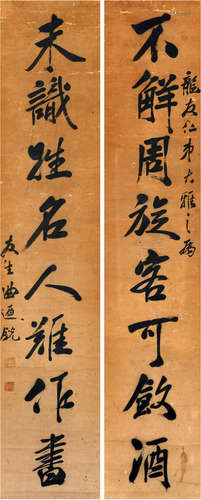 不解周旋客可飲酒
龍友仁弟大雅之
未識姓名人難作書
友生曲迺銳